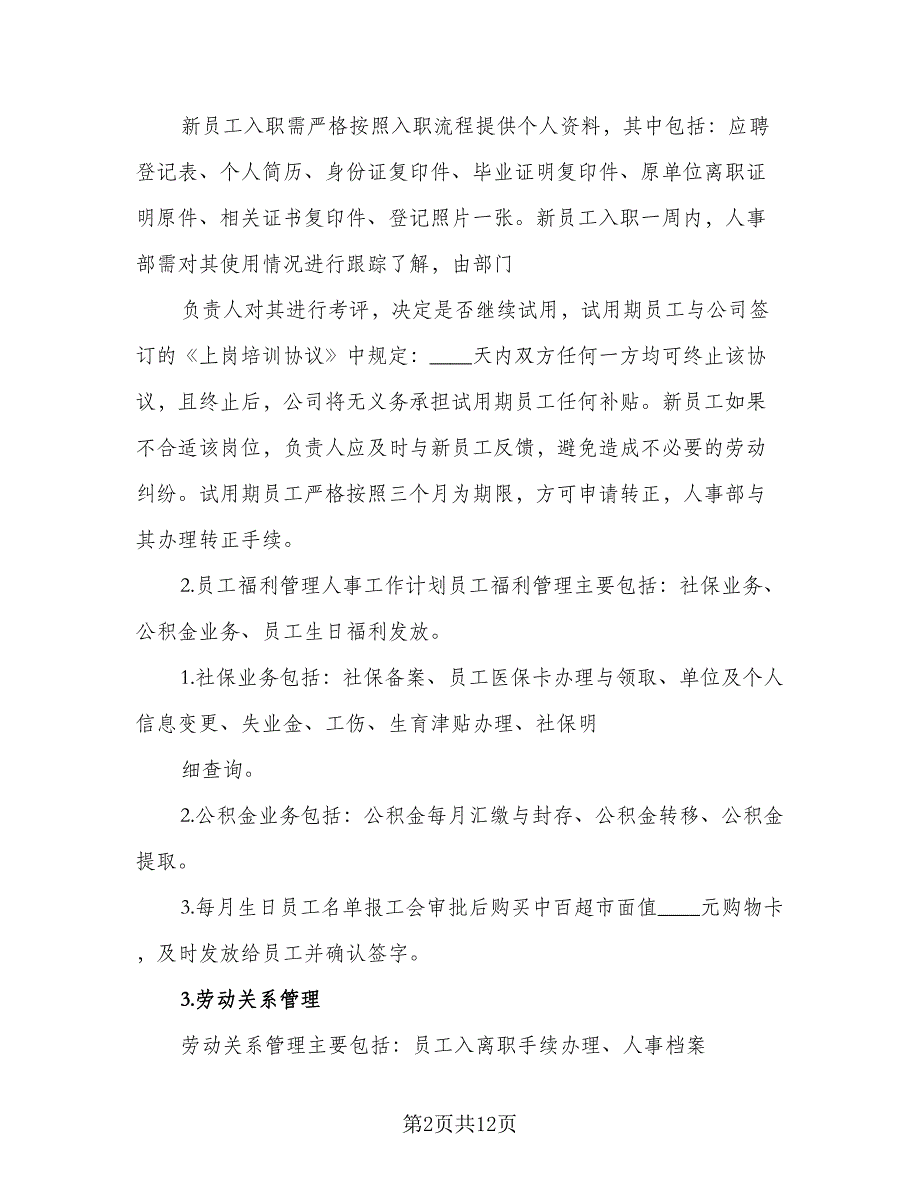 新员工入职需严格按照入职流程提供个人资料，其中包括：应聘
登记表、个人简历、身份证复印件、毕业证明复印件、原单位离职证
明原件、相关证书复印件、登记照片一张。新员工入职一周内，人事
部需对其使用情况进行跟踪了解，由部门
负责人对其进行考评，决定是否继续试用，试用期员工与公司签
订的《上岗培训协议》中规定：____天内双方任何一方均可终止该协
议，且终止后，公司将无义务承担试用期员工任何补贴。新员工如果
不合适该岗位，负责人应及时与新员工反馈，避免造成不必要的劳动
纠纷。试用期员工严格按照三个月为期限，方可申请转正，人事部与
其办理转正手续。
2.员工福利管理人事工作计划员工福利管理主要包括：社保业务、
公积金业务、员工生日福利发放。
1.社保业务包括：社保备案、员工医保卡办理与领取、单位及个人
信息变更、失业金、工伤、生育津贴办理、社保明
细查询。
2.公积金业务包括：公积金每月汇缴与封存、公积金转移、公积金
提取。
3.每月生日员工名单报工会审批后购买中百超市面值____元购物卡
，及时发放给员工并确认签字。
3.劳动关系管理
劳动关系管理主要包括：员工入离职手续办理、人事档案
第2页共12页